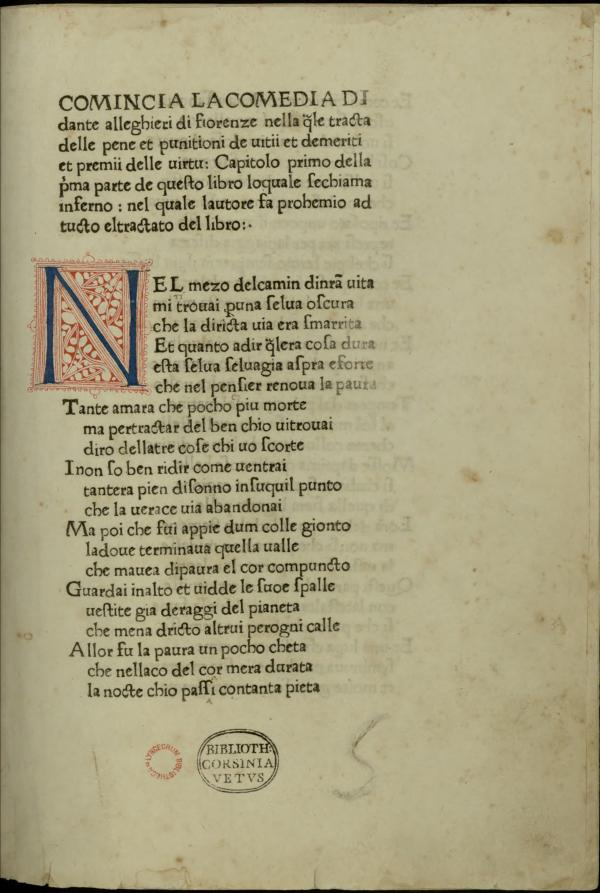 COMINCIA LA COMEDIA DI
dante alleghieri di fiorenze nella q̃le tracta
delle pene et punitioni de uitii et demeriti
et premii delle uirtu: Capitolo primo della
p̃ma parte de queſto libro loquale ſechiama
inferno : nel quale lautore fa prohemio ad
tucto eltractato del libro:·
NEL mezo delcamin dinrã uita
mi trouai ꝑuna ſelua oſcura
che la diricta uia era ſmarrita
Et quanto adir q̃lera coſa dura
eſta ſelua ſeluagia aſpra eforte
che nel penſier renoua la paura
Tante amara che pocho piu morte
ma pertractar del ben chio uitrouai
diro dellatre coſe chi uo ſcorte
I non ſo ben ridir come uentrai
tantera pien diſonno inſuquil punto
che la uerace uia abandonai
Ma poi che fui appie dum colle gionto
ladoue terminaua quella ualle
che mauea dipaura el cor compuncto
Guardai inalto et uidde le ſuoe ſpalle
ueſtite gia deraggi del pianeta
che mena dricto altrui perogni calle
Allor fu la paura un pocho cheta
che nellaco del cor mera durata
la nocte chio paſſi contanta pieta
LYNCEORUM BIBLIOTHECA
BIBLIOTH.
CORSINIA
VETVS